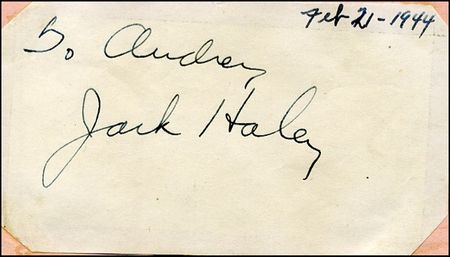 Feb 21-1944
To Audrey
Jack Haley